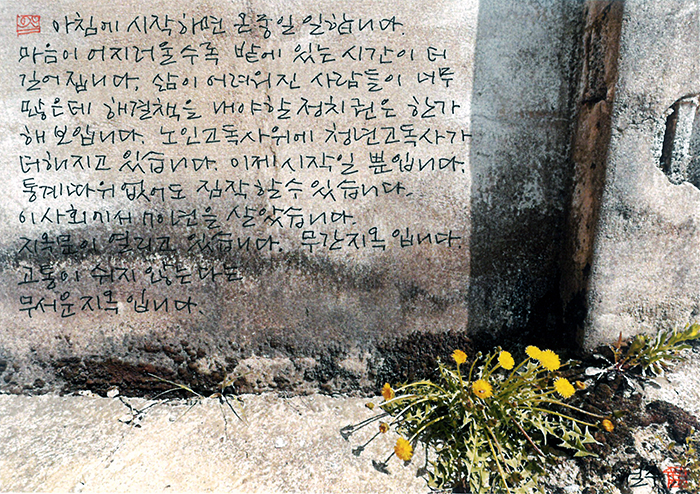 아침에 시작하면 온종일 일합니다.
마음이 어지러울수록 밭에 있는 시간이 더
길어집니다. 삶이 어려워진 사람들이 너무
많은데 해결책을 내야할 정치권은 한가
해 보입니다. 노인고독사위에 청년고독사가
더해지고 있습니다. 이제 시작일 뿐입니다.
통계따위 없어도 짐작할수 있습니다.
이사회에서 70여년을 살았습니다.
지옥문이 열리고 있습니다. 무간지옥입니다.
고통이 쉬지 않는다는
무서운 지옥입니다.